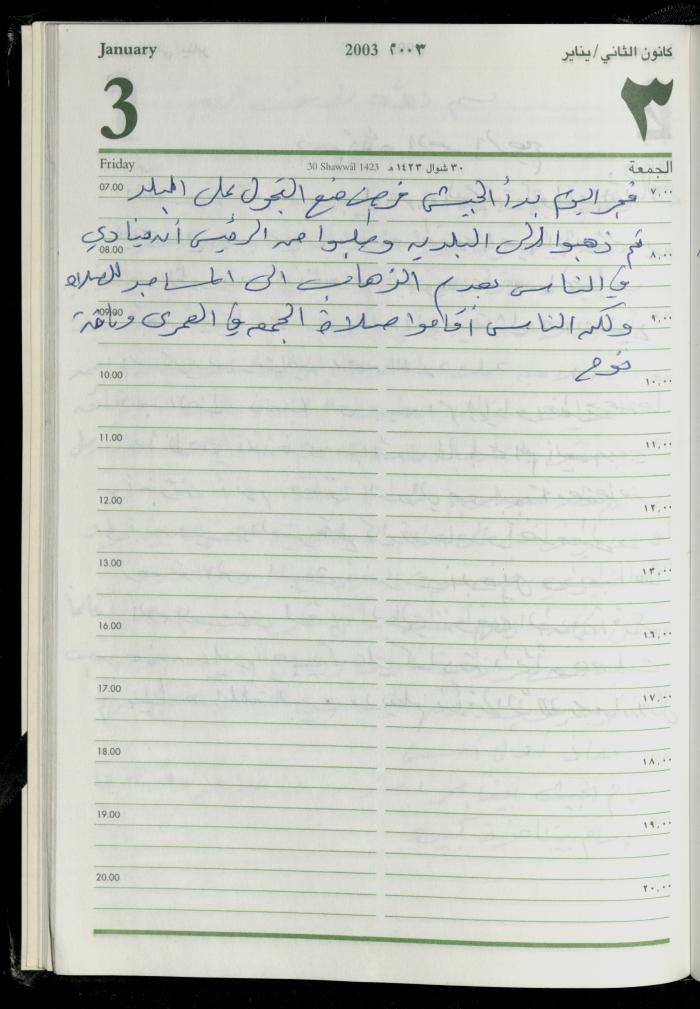 January 2003 ٢٠٠٣ كانون الثاني/يناير
3 ٣
Friday 30 Shawwâl 1423 ٣٠ شوال ١٤٢٣ هـ الجمعة
07.00 فجر اليوم بدأ الجيش فرض منع التجول على البلد ٧,٠٠
ثم ذهبوا إلى البلديه وطلبوا من الرئيس أن ينادي
08.00 ٨,٠٠
في الناس بعدم الذهاب الى المساجد للصلاه
09.00 ولكن الناس أقاموا صلاة الجمعه في العمرى وباقة ٩,٠٠
10.00 ١٠,٠٠
11.00 ١١,٠٠
12.00 ١٢,٠٠
13.00 ١٣,٠٠
16.00 ١٦,٠٠
17.00 ١٧,٠٠
18.00 ١٨,٠٠
19.00 ١٩,٠٠
20.00 ٢٠,٠٠